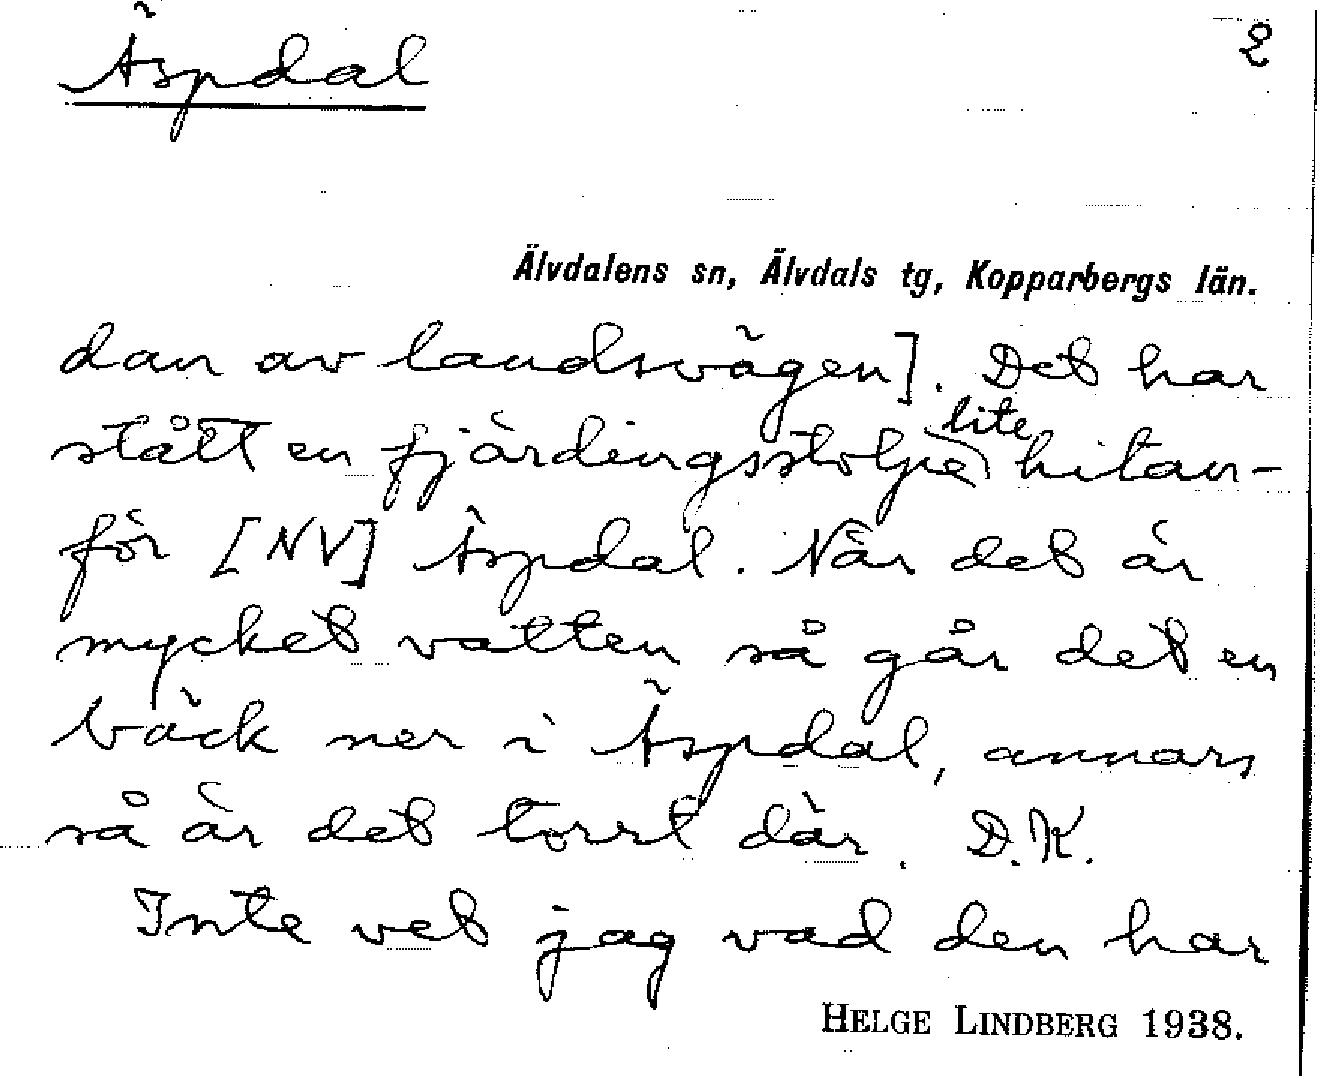 Äspdal 2
Älvdalens sn, Älvdals tg, Kopparbergs län.
dan av landsvägen]. Det har
stått en fjärdingsstolpe lite hitan-
för [NV] Äspdal. När det är
mycket vatten så går det en
bäck ner i Äspdal, annars
så är det torrt där. D.K.
Inte vet jag vad den har
HELGE LINDBERG 1938.